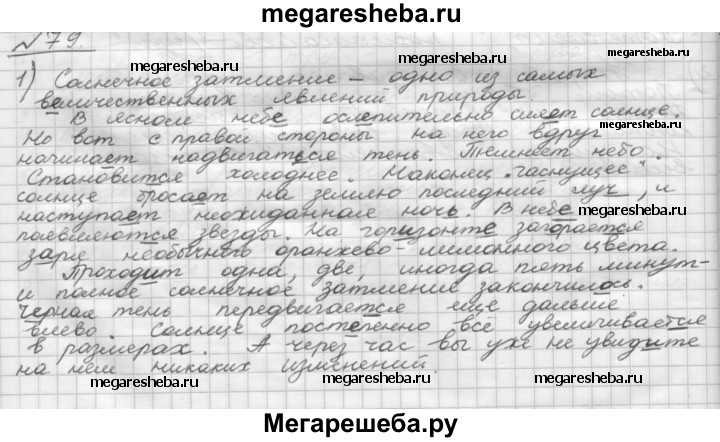 megaresheba.ru
№79.
1) Солнечное затмение – одно из самых megaresheba.ru
величественных явлений природы.
В ясном небе ослепительно сияет солнце.
Но вот с правой стороны на него вдруг megaresheba.ru
начинает надвигаться тень. Темнеет небо.
Становится холоднее. Наконец „гаснущее"
солнце бросает на землю последний луч, и
наступает неожиданная ночь. В небе
megaresheba.ru megaresheba.ru
появляются звезды. На горизонте загорается
заря необычного оранжево-лимонного цвета.
Проходит одна, две, иногда пять минут –
и полное солнечное затмение закончилось.
Черная тень передвигается еще дальше
влево. Солнце постепенно все увеличивается
в размерах. А через час вы уже не увидите
на нем никаких изменений.
megaresheba.ru megaresheba.ru
Мегарешеба.ру